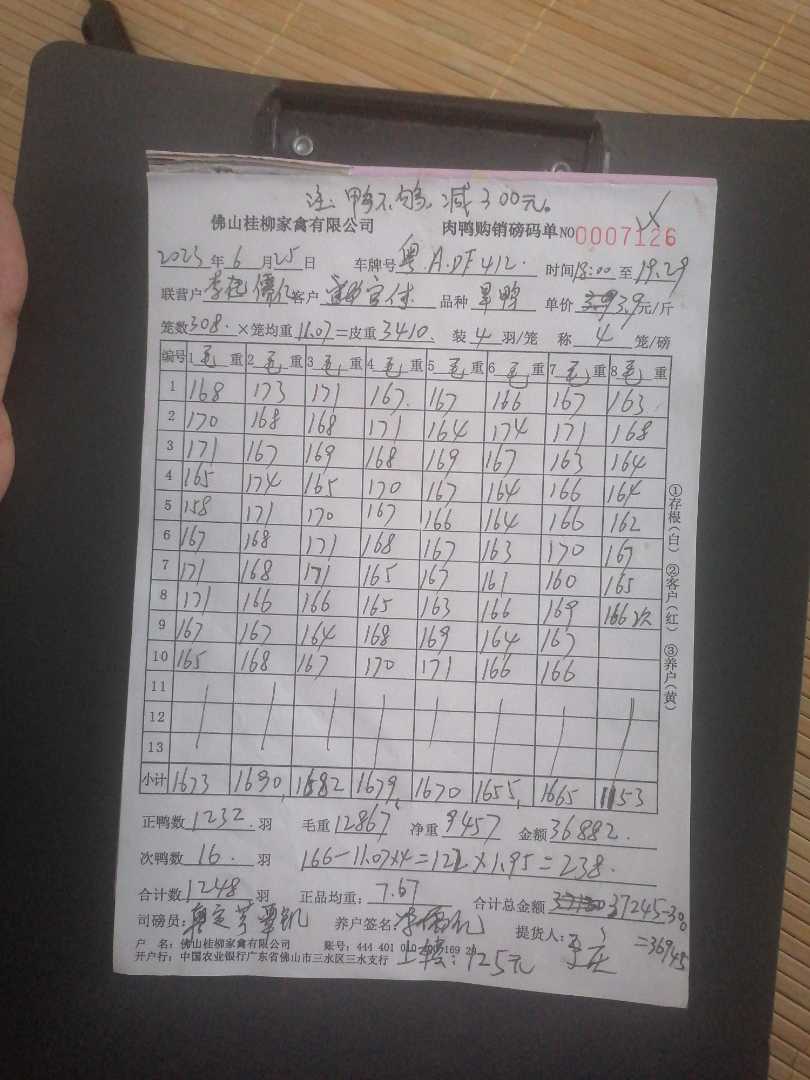 注：鸭不够，减300元。
佛山桂柳家禽有限公司 肉鸭购销磅码单 NO 0007126
2023年6月25日 车牌号 粤A.DF412. 时间 18:00 至 19:29
联营户 李 客户 品种 旱鸭 单价 3.9 3.9 元/斤
笼数 308. ×笼均重 11.07 =皮重 3410. 装 4 羽/笼 称 4 笼/磅
编号 1毛重 2毛重 3毛重 4毛重 5毛重 6毛重 7毛重 8毛重
1 168 173 171 167. 167 166 167 163.
2 170 168 168 171 164 174 171 168
3 171 167 169 168 169 167 163 164
4 165 174 165 170 167 164 166 164
5 158 171 170 167 166 164 166 162
6 167 168 171 168 167 163 170 167
7 171 168 171 165 167 161 160 165
8 171 166 166 165 163 166 169 166次
9 167 167 164 168 169 164 167
10 165 168 167 170 171 166 166
11
12
13
小计 1673 1690, 1682 1679, 1670 1655, 1665 1153
正鸭数 1232. 羽 毛重 12867 净重 9457 金额 36882.
次鸭数 16. 羽 166-11.07×4=122×1.95=238.
合计数 1248 羽 正品均重： 7.67 合计总金额 37245-300
司磅员： 养户签名： 李 提货人： =36945
户 名：佛山桂柳家禽有限公司 账号：444 401 010 169
开户行：中国农业银行广东省佛山市三水区三水支行 上 ：725元
①存根（白） ②客户（红） ③养户（黄）